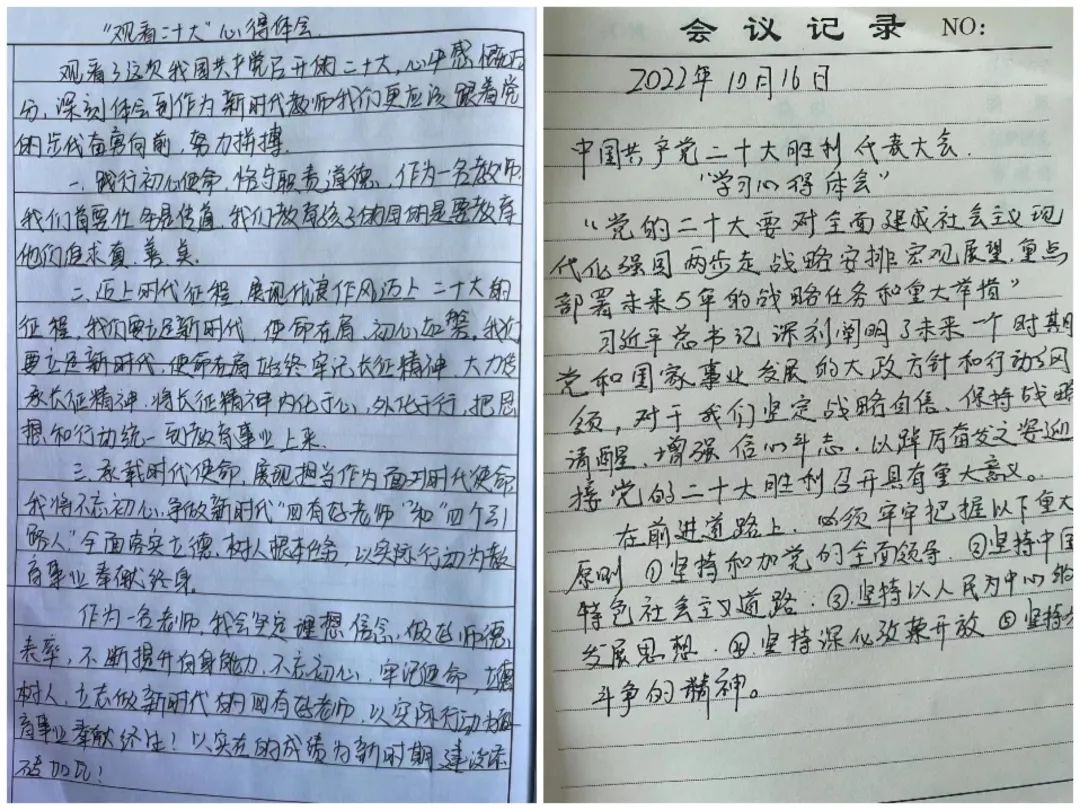 "观看二十大"心得体会.
观看了这次我国共产党召开的二十大,心中感慨万
分,深刻体会到作为新时代教师我们更应该跟着党
的步伐奋勇向前,努力拼搏.
一.践行初心使命,恪守职责道德,作为一名教师
我们首要任务是传道,我们教育孩子的目的是要教育
他们追求真、善、美.
二.迈上时代征程,展现优良作风迈上二十大的
征程,我们要立足新时代,使命在肩,初心如磐,我们
要立足新时代,使命在肩始终牢记长征精神,大力传
承长征精神,将长征精神内化于心,外化于行,把思
想和行动统一到教育事业上来.
三.承载时代使命,展现担当作为面对时代使命
我将不忘初心,争做新时代"四有好老师"和"四个引
路人"全面落实立德,树人根本任务,以实际行动为教
育事业奉献终身.
作为一名老师,我会坚定理想信念,做好师德
表率,不断提升自身能力,不忘初心,牢记使命,立德
树人,立志做新时代的四有好老师,以实际行动为教
育事业奉献终生!以实在的成绩为新时期建设添
砖加瓦!
会议记录 NO:
2022年10月16日
中国共产党二十大胜利代表大会.
"学习心得体会"
"党的二十大要对全面建成社会主义现
代化强国两步走战略安排宏观展望,重点
部署未来5年的战略任务和重大举措"
习近平总书记深刻阐明了未来一个时期
党和国家事业发展的大政方针和行动纲
领,对于我们坚定战略自信、保持战略
清醒、增强信心斗志,以踔厉奋发之姿迎
接党的二十大胜利召开具有重大意义。
在前进道路上,必须牢牢把握以下重大
原则 ①坚持和加党的全面领导.②坚持中国
特色社会主义道路.③.坚持以人民为中心的
发展思想.④.坚持深化改革开放 ⑤坚持发
斗争的精神。